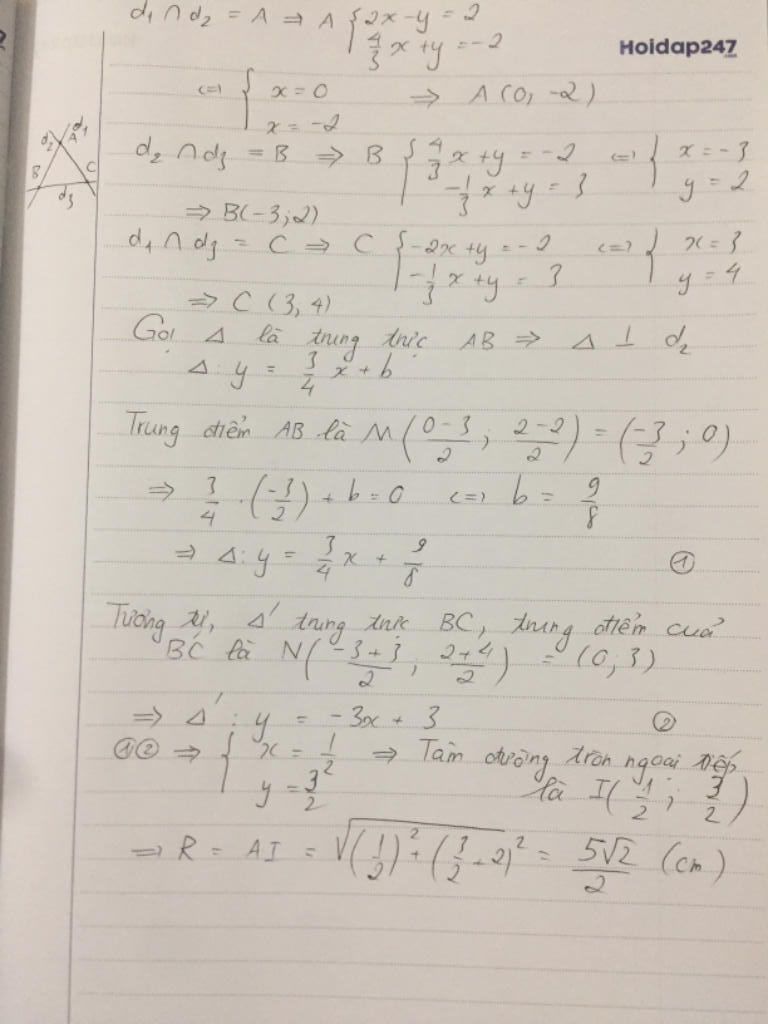 d₁ ∩ d₂ = A ⇒ A { 2x - y = 2
4/3 x + y = -2
Hoidap247
⇔ { x = 0 ⇒ A (0, -2)
x = -2
d₂ ∩ d₃ = B ⇒ B { 4/3 x + y = -2 ⇔ { x = -3
-1/3 x + y = 3 y = 2
⇒ B(-3; 2)
d₁ ∩ d₃ = C ⇒ C { -2x + y = -2 ⇔ { x = 3
-1/3 x + y = 3 y = 4
⇒ C (3, 4)
d₂ d₁
A
B C
d₃
Gọi Δ là trung trực AB ⇒ Δ ⊥ d₂
Δ: y = 3/4 x + b
Trung điểm AB là M( (0-3)/2 ; (2-2)/2 ) = ( -3/2 ; 0 )
⇒ 3/4 . ( -3/2 ) + b = 0 ⇔ b = 9/8
⇒ Δ: y = 3/4 x + 9/8 ①
Tương tự, Δ' trung trực BC, trung điểm của
BC là N( (-3+3)/2 ; (2+4)/2 ) = (0; 3)
⇒ Δ': y = -3x + 3 ②
①② ⇒ { x = 1/2 ⇒ Tâm đường tròn ngoại tiếp
y = 3/2 là I( 1/2 ; 3/2 )
⇒ R = AI = √( (1/2)² + (3/2 + 2)² ) = 5√2/2 (cm)